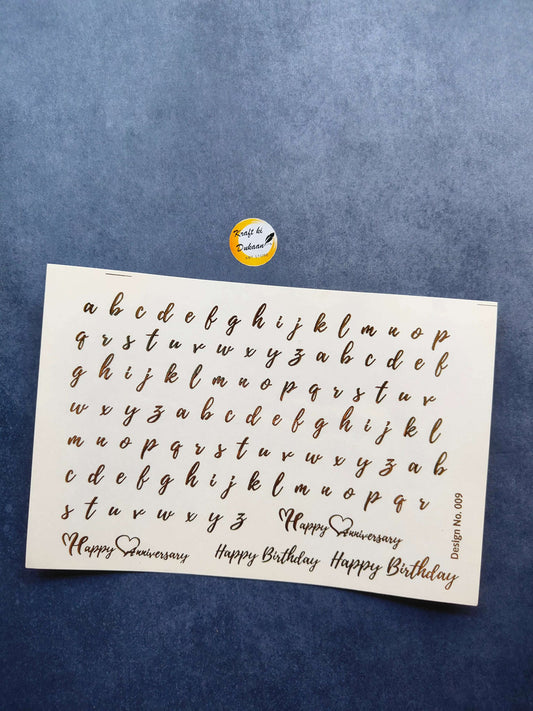 Kraft ki
Dukaan
ART STORE
a b c d e f g h i j k l m n o p
q r s t u v w x y z a b c d e f
g h i j k l m n o p q r s t u v
w x y z a b c d e f g h i j k l
m n o p q r s t u v w x y z a b
c d e f g h i j k l m n o p q r
s t u v w x y z
Happy Anniversary
Happy Anniversary
Happy Birthday
Happy Birthday
Design No. 009